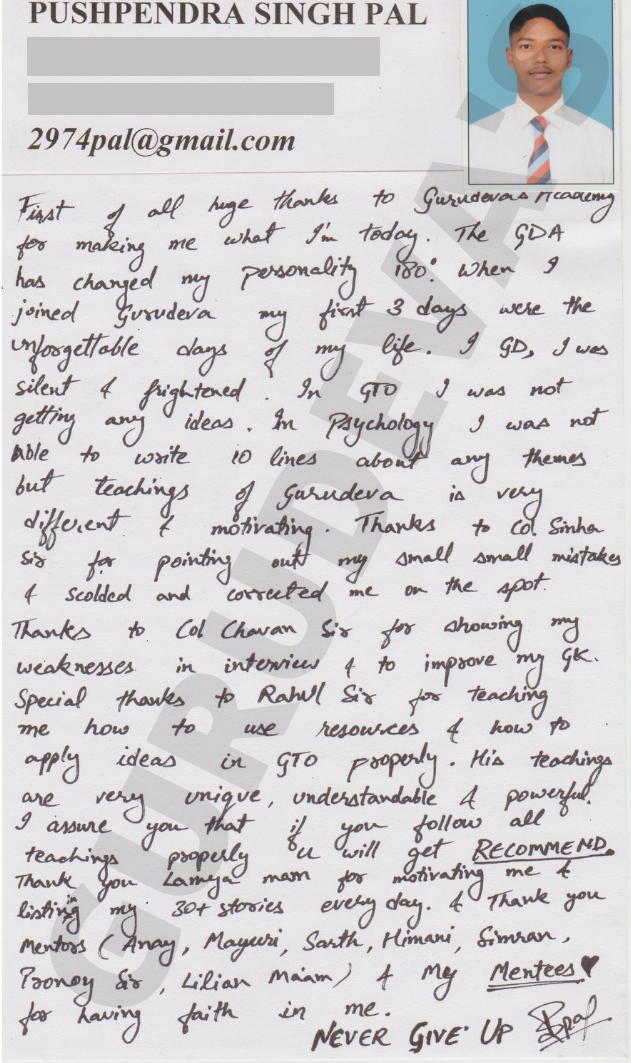 PUSHPENDRA SINGH PAL
2974pal@gmail.com
First of all huge thanks to Gurudevas Academy
for making me what I'm today. The GDA
has changed my personality 180°. When I
joined Gurudeva my first 3 days were the
unforgettable days of my life. I GD, I was
silent & frightened. In GTO I was not
getting any ideas. In Psychology I was not
able to write 10 lines about any themes
but teachings of Gurudeva is very
different & motivating. Thanks to Col. Sinha
Sir for pointing out my small small mistakes
& scolded and corrected me on the spot.
Thanks to Col Chavan Sir for showing my
weaknesses in interview & to improve my GK.
Special thanks to Rahul Sir for teaching
me how to use resources & how to
apply ideas in GTO properly. His teachings
are very unique, understandable & powerful.
I assure you that if you follow all
teachings properly u will get RECOMMEND.
Thank you Lamya mam for motivating me &
listing in my 30+ stories every day. & Thank you
Mentors (Anay, Mayuri, Sarth, Himani, Simran,
Pronoy Sir, Lilian Ma'am) & My Mentees ♥
for having faith in me.
NEVER GIVE UP Pspal
GURUDEVA'S